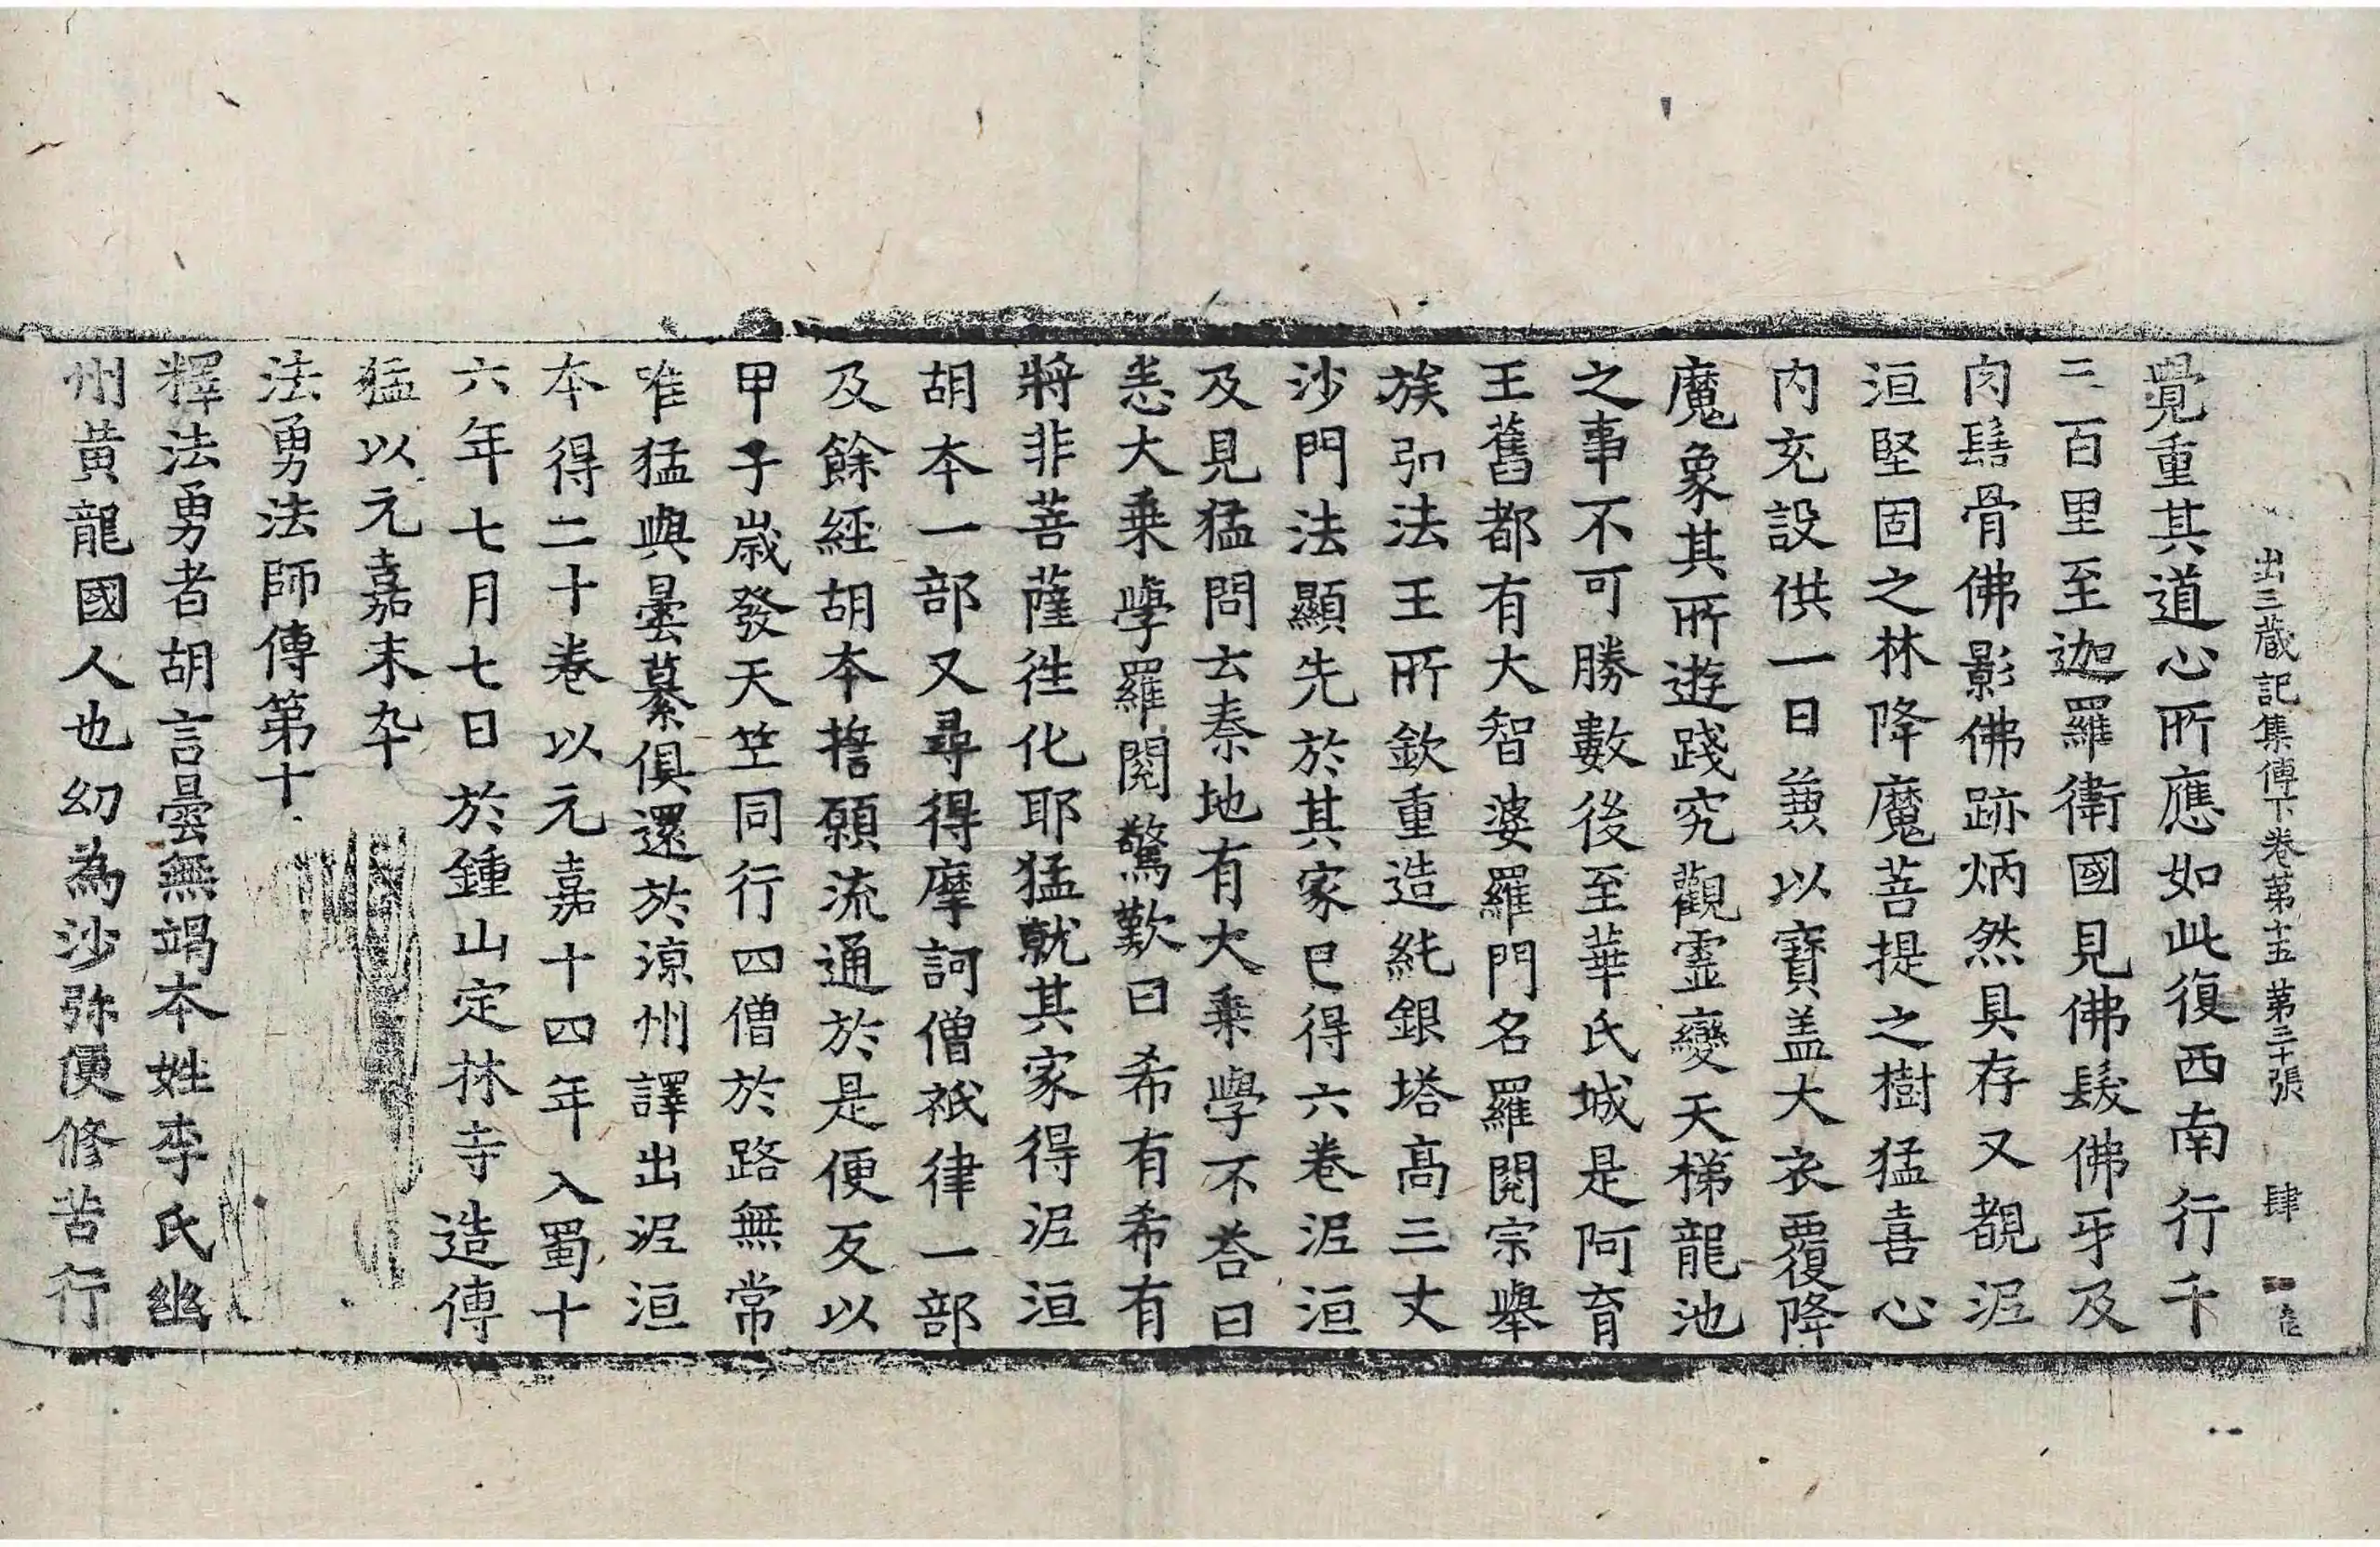 出三藏記集傳下卷第十五 第三十張 肆
覺重其道心所應如此復西南行千
三百里至迦羅衛國見佛髮佛牙及
肉髻骨佛影佛跡炳然具存又覩泥
洹堅固之林降魔菩提之樹猛喜心
内充設供一日兼以寶盖大衣覆降
魔象其所遊踐究觀靈變天梯龍池
之事不可勝數後至華氏城是阿育
王舊都有大智婆羅門名羅閱宗舉
族弘法王所欽重造純銀塔高三丈
沙門法顯先於其家已得六卷泥洹
及見猛問云秦地有大乘學不荅曰
悉大乘學羅閱驚歎曰希有希有
將非菩薩徃化耶猛就其家得泥洹
胡本一部又尋得摩訶僧祇律一部
及餘經胡本誓願流通於是便反以
甲子歲發天竺同行四僧於路無常
唯猛與曇纂俱還於涼州譯出泥洹
本得二十卷以元嘉十四年入蜀十
六年七月七日於鍾山定林寺造傳
猛以元嘉末卒
法勇法師傳第十
釋法勇者胡言曇無竭本姓李氏幽
州黃龍國人也幼為沙弥便修苦行